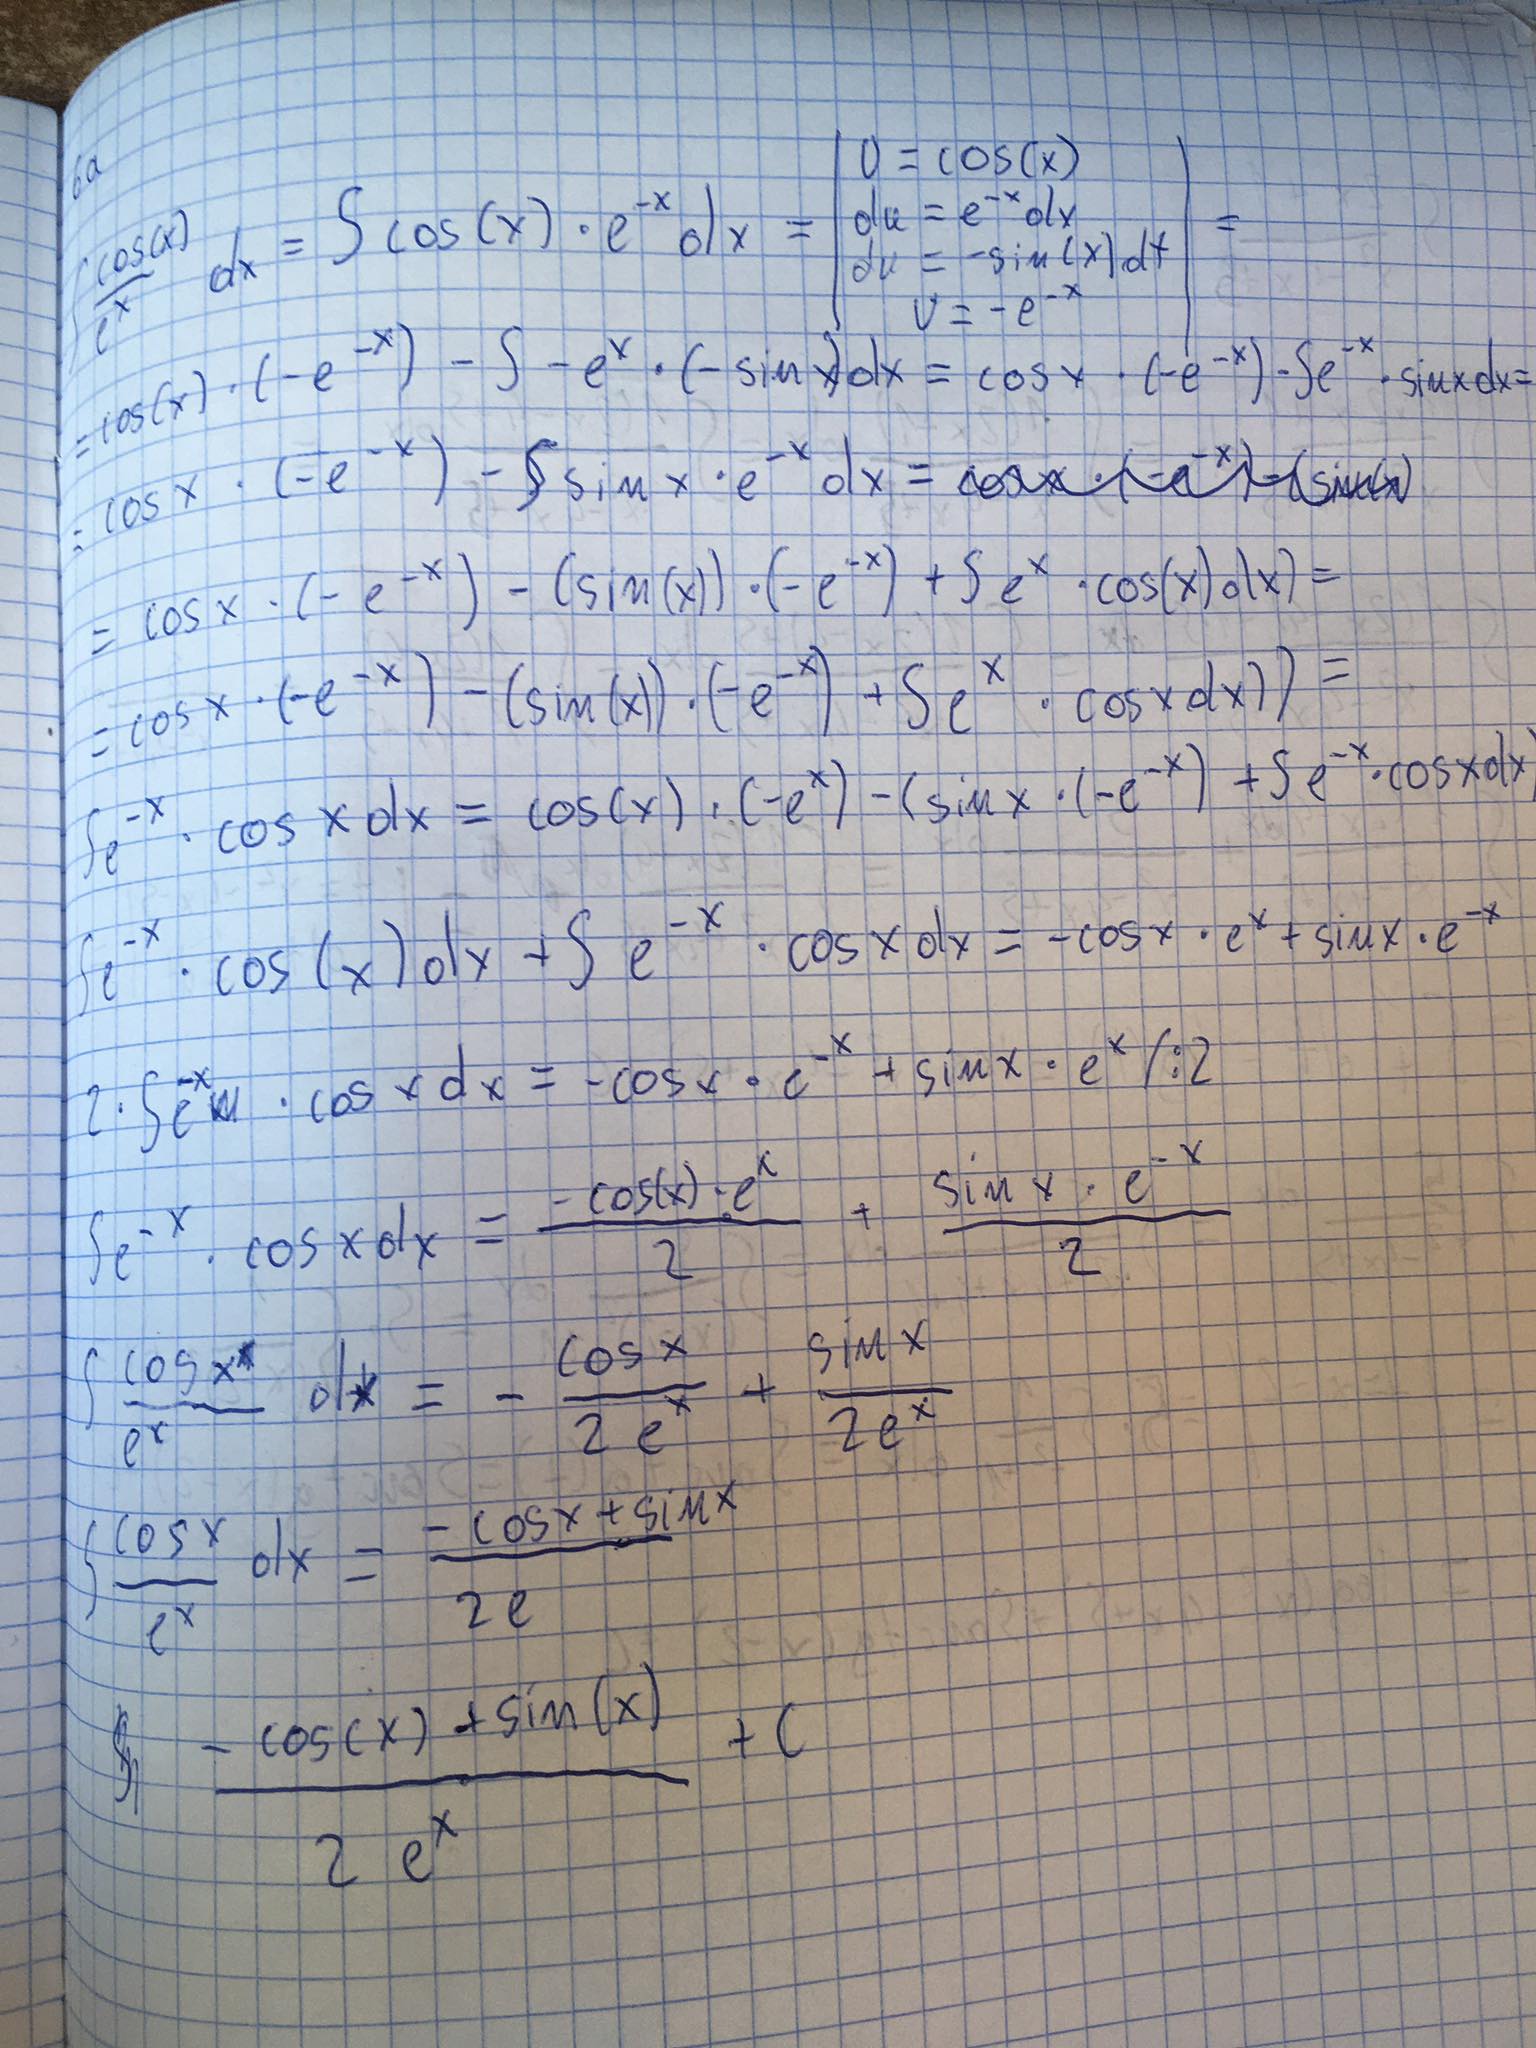 6a
∫ cos(x)/e^x dx = ∫ cos(x) · e^-x dx = | U = cos(x) du = e^-x dx du = -sin(x) dx U = -e^-x | =
= cos(x) · (-e^-x) - ∫ -e^x · (-sin x) dx = cos x · (-e^-x) - ∫ e^-x · sin x dx =
= cos x · (-e^-x) - ∫ sin x · e^-x dx =
= cos x · (-e^-x) - (sin(x)) · (-e^-x) + ∫ e^x · cos(x) dx) =
= cos x · (-e^-x) - (sin(x)) · (-e^-x) + ∫ e^x · cos x dx)) =
∫ e^-x · cos x dx = cos(x) · (-e^x) - (sin x · (-e^-x) + ∫ e^-x · cos x dx)
∫ e^-x · cos(x) dx + ∫ e^-x · cos x dx = -cos x · e^x + sin x · e^-x
2 · ∫ e^-x · cos x dx = -cos x · e^-x + sin x · e^x /:2
∫ e^-x · cos x dx = -cos(x) · e^x / 2 + sin x · e^-x / 2
∫ cos x / e^x dx = - cos x / 2e^x + sin x / 2e^x
∫ cos x / e^x dx = -cos x + sin x / 2e
-cos(x) + sin(x) / 2e^x + C